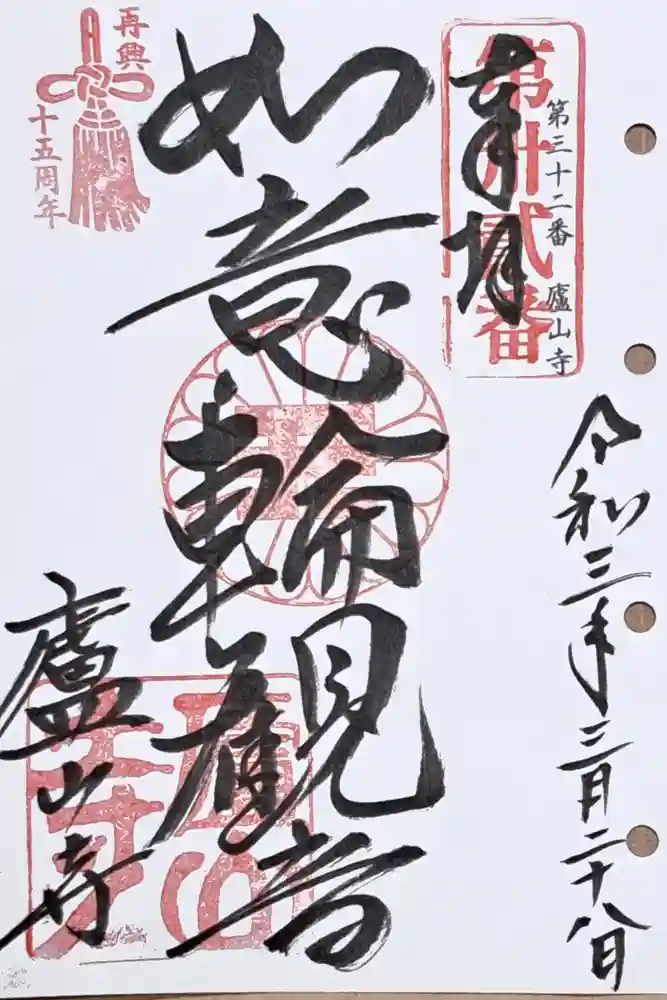 令和三年三月二十八日
第三十二番 廬山寺
第卅貳番
奉拝
如意輪観音
再興
十五周年
廬山寺
廬山寺